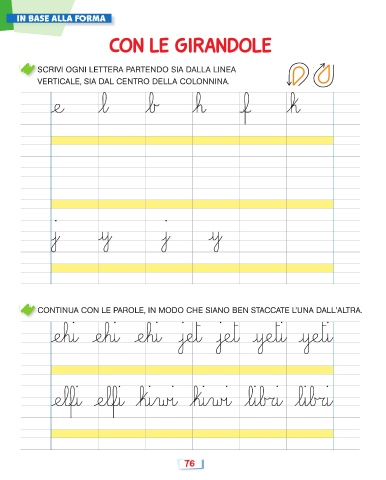 IN BASE ALLA FORMA
CON LE GIRANDOLE
SCRIVI OGNI LETTERA PARTENDO SIA DALLA LINEA
VERTICALE, SIA DAL CENTRO DELLA COLONNINA.
e l b h f k
j y j y
CONTINUA CON LE PAROLE, IN MODO CHE SIANO BEN STACCATE L'UNA DALL'ALTRA.
ehi ehi ehi jet jet yeti yeti
elfi elfi kiwi kiwi libri libri
76